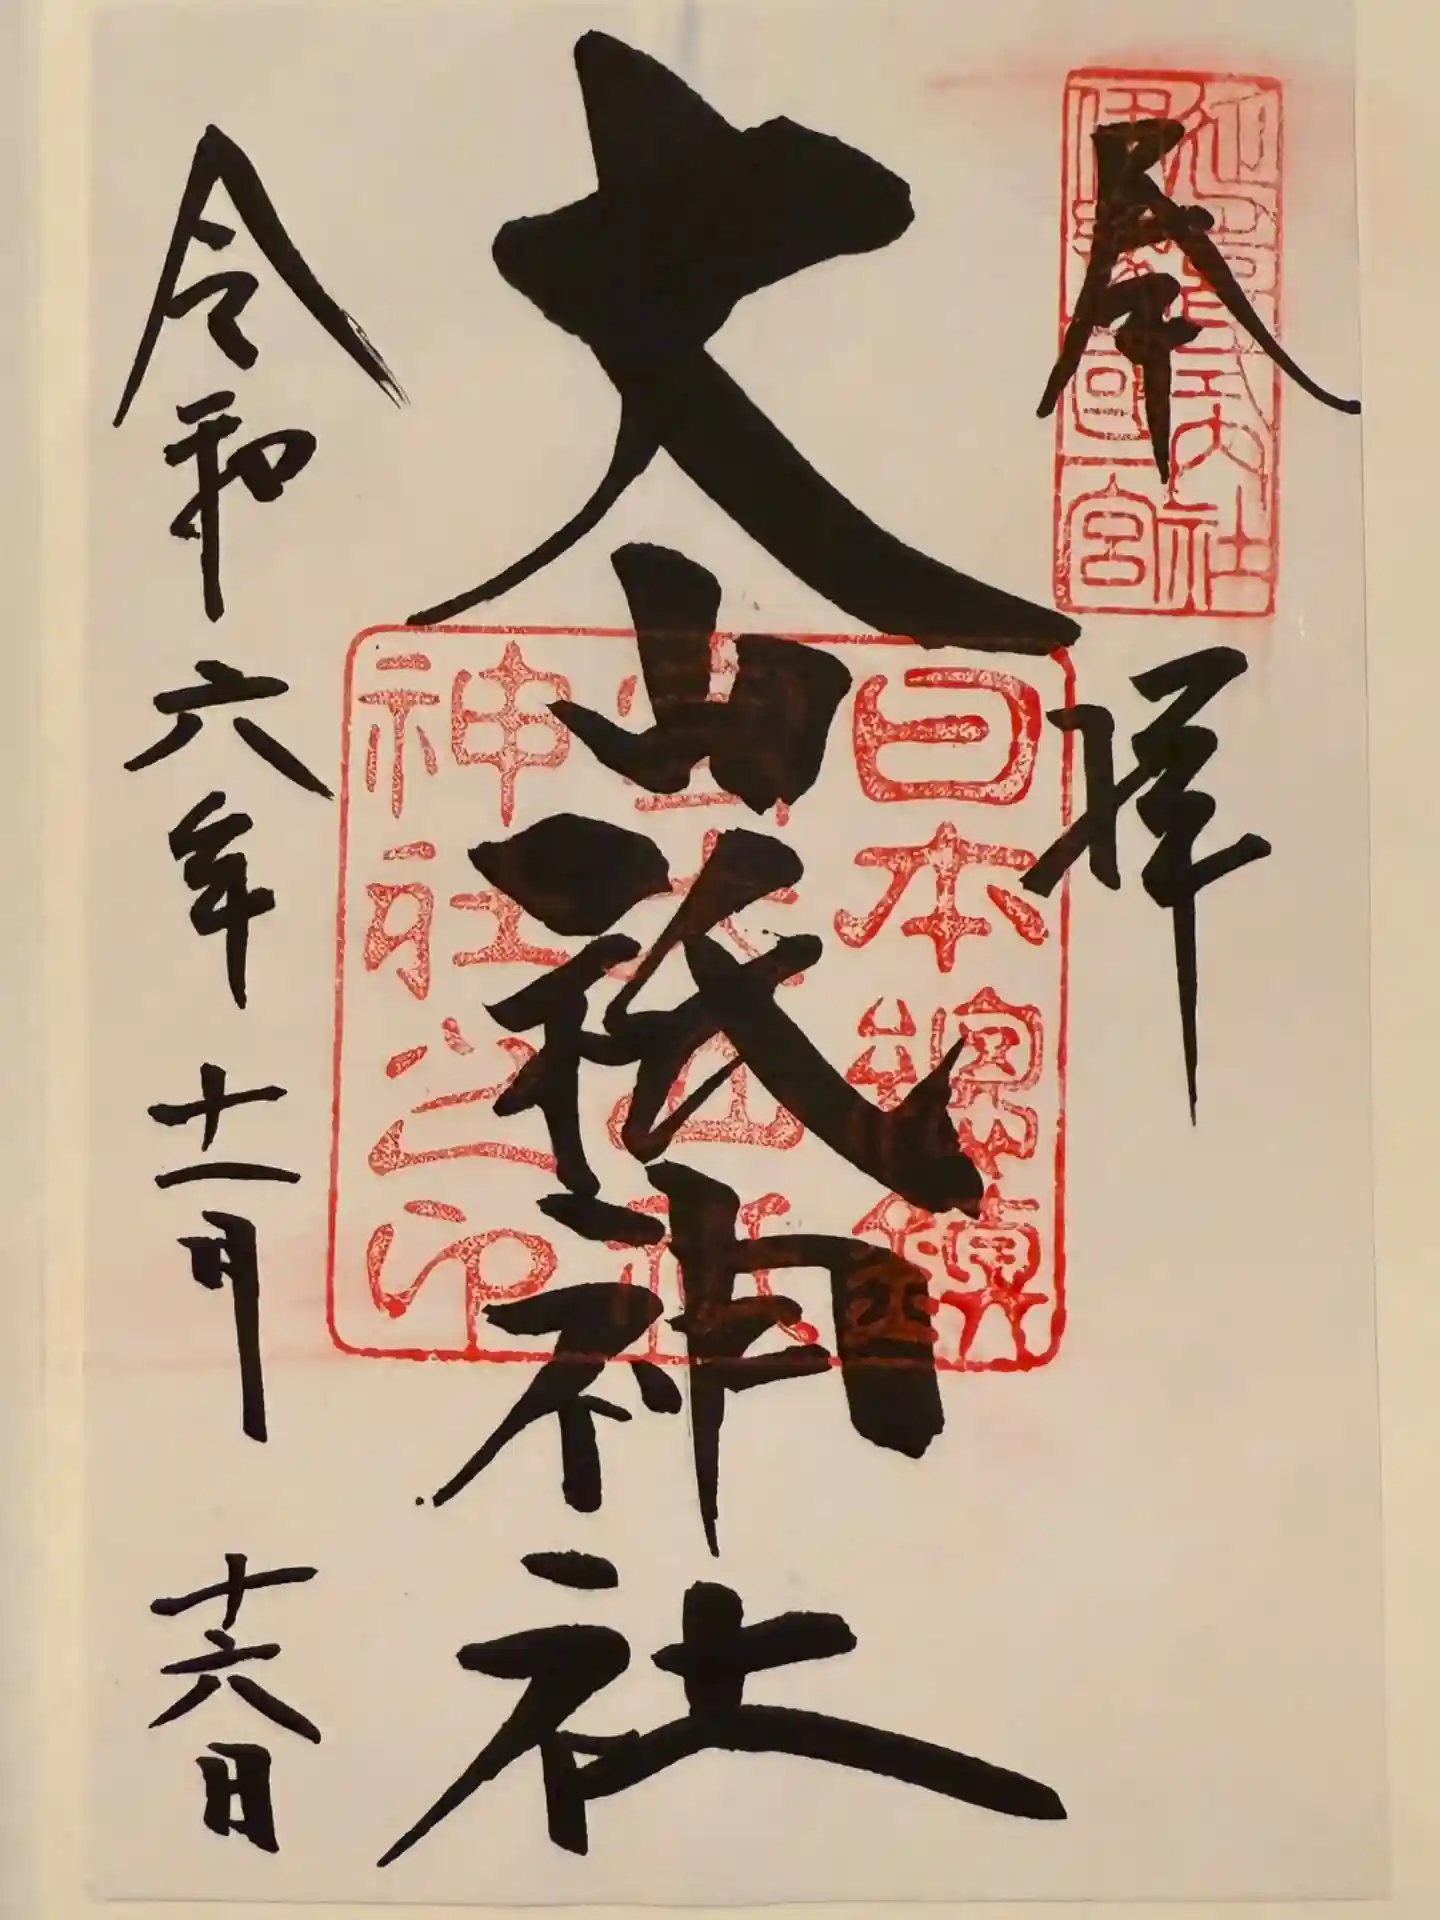 奉拝
延喜式内社
伊豫国一宮
大山祇神社
日本總鎮
守大山祇
神社之印
令和六年十一月十六日